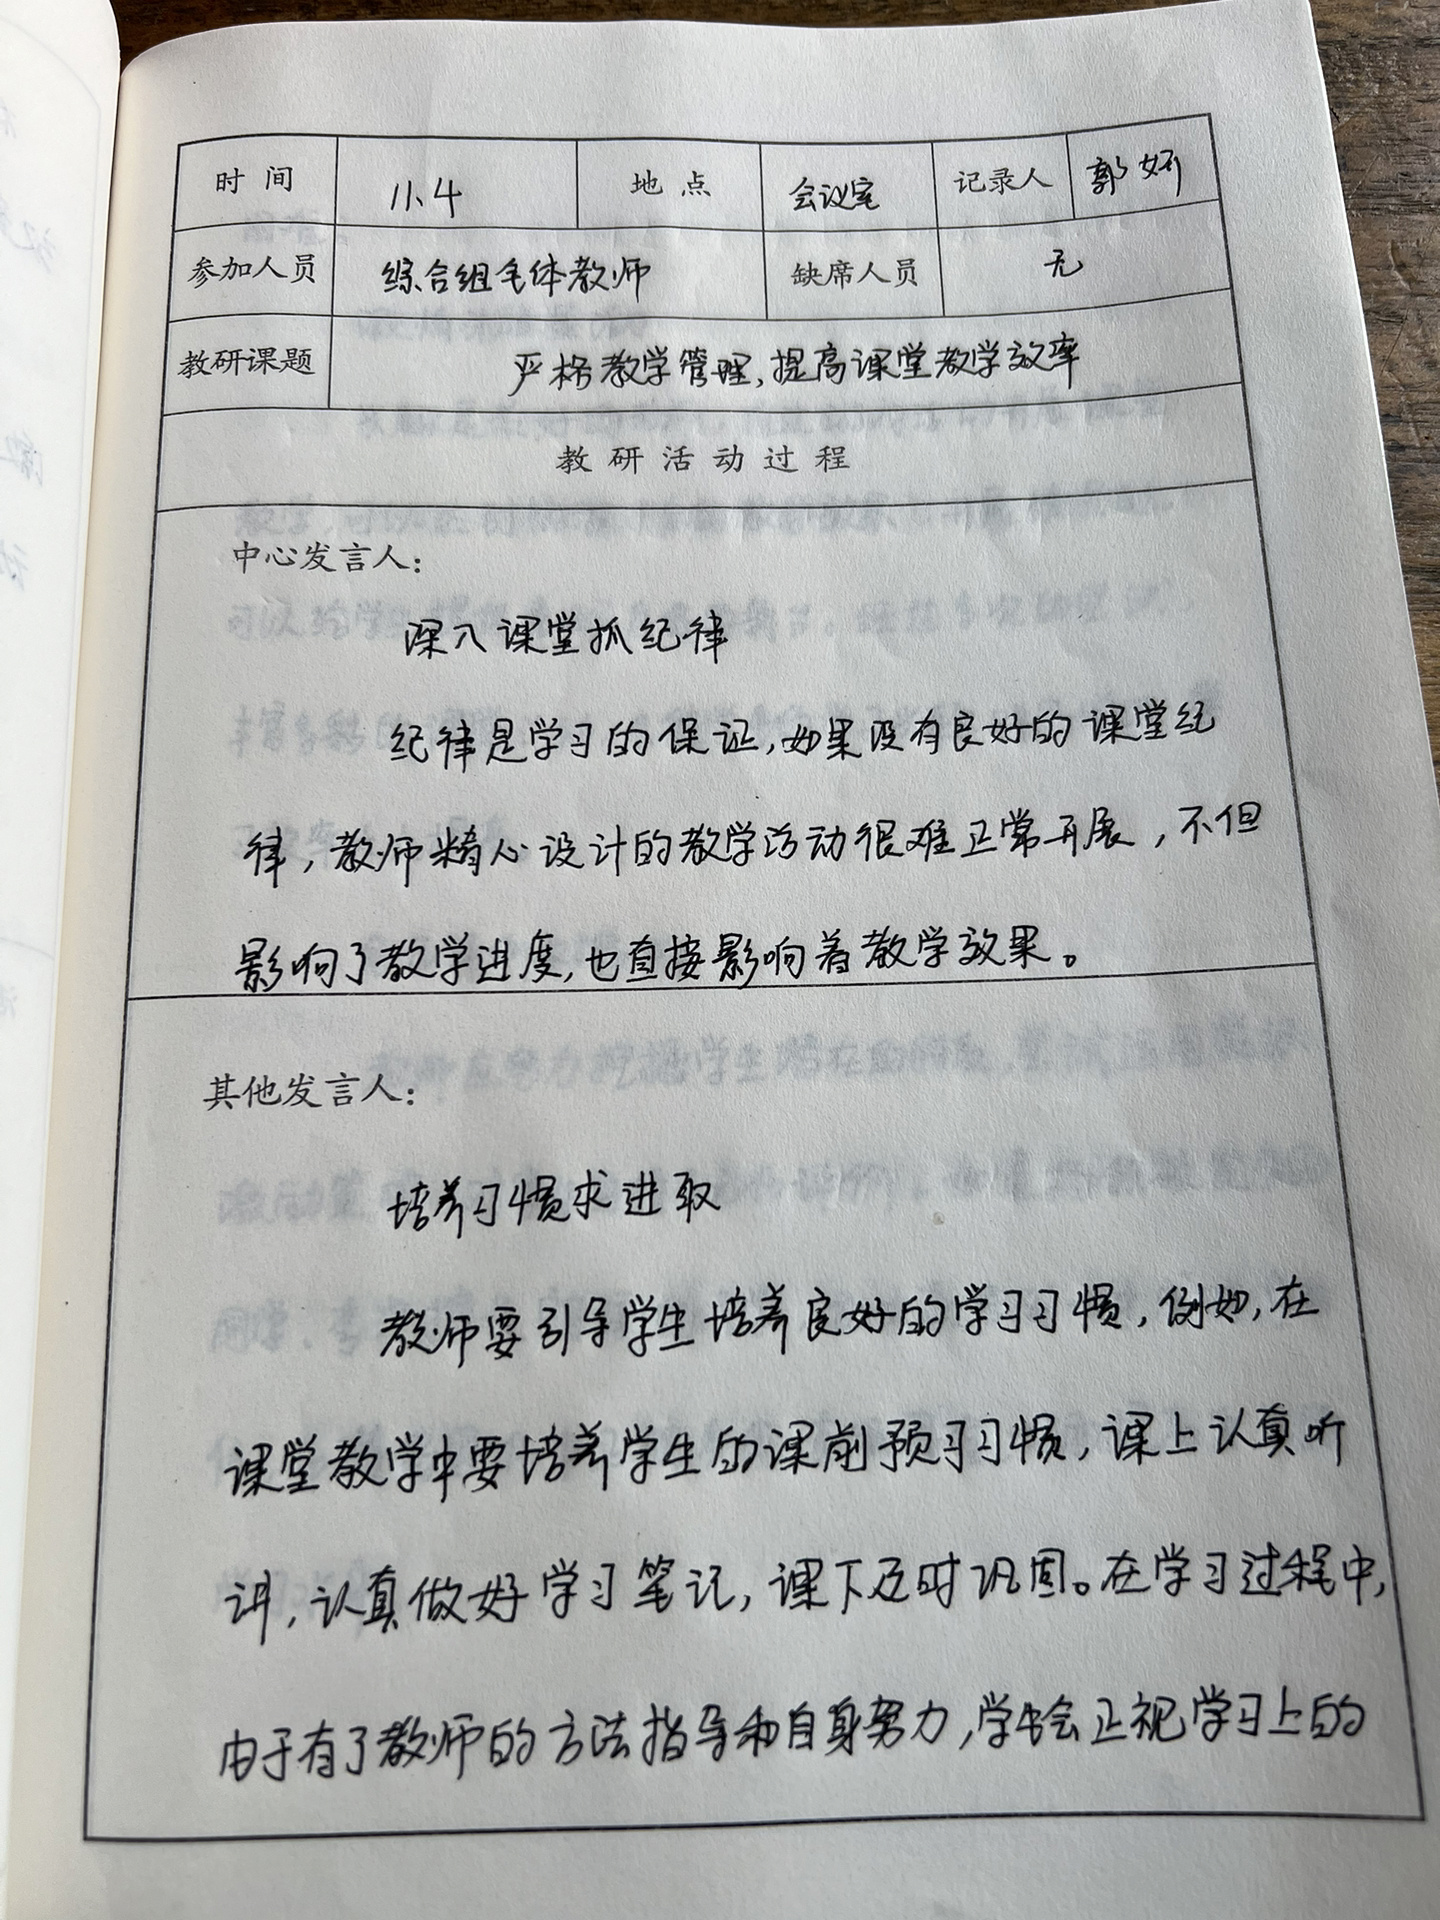 时间 11.4 地点 会议室 记录人 郭妍
参加人员 综合组全体教师 缺席人员 无
教研课题 严格教学管理,提高课堂教学效率
教研活动过程
中心发言人:
深入课堂抓纪律
纪律是学习的保证,如果没有良好的课堂纪
律,教师精心设计的教学活动很难正常开展,不但
影响了教学进度,也直接影响着教学效果。
其他发言人:
培养习惯求进取
教师要引导学生培养良好的学习习惯,例如,在
课堂教学中要培养学生的课前预习习惯,课上认真听
讲,认真做好学习笔记,课下及时巩固。在学习过程中,
由于有了教师的方法指导和自身努力,学生会正视学习上的